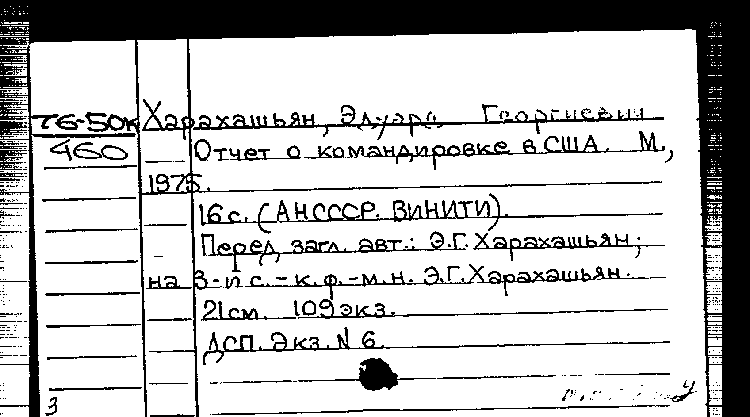 Т6-50к Харахашьян, Эдуард Георгиевич
460 Отчет о командировке в США. М.,
1975.
16 с. (АНСССР. ВИНИТИ).
Перед загл. авт.: Э.Г. Харахашьян;
на 3-й с. - к.ф.-м.н. Э.Г. Харахашьян.
21 см. 109 экз.
ДСП. Экз. N 6.
3